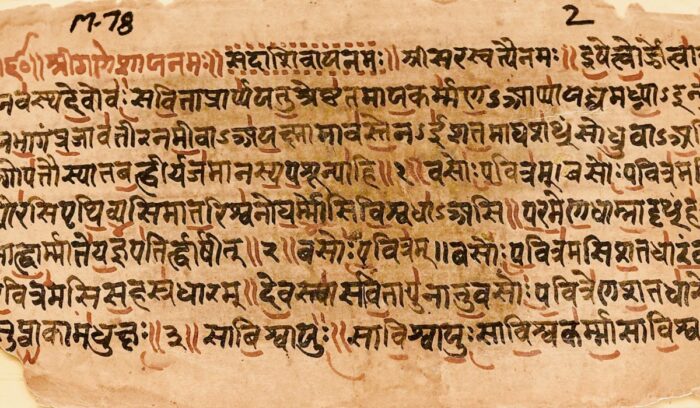 M-78 2
॥श्रीगणेशायनमः॥ सदाशिवायनमः॥ श्रीसरस्वत्यैनमः॥ इषेत्वोर्जेत्वा
वस्थदेवोवः सविताप्रार्पयतुश्रेष्ठतमायकर्म्मणऽआप्यायध्वमघ्न्याऽइन्द्रा
भागंप्रजावतीरनमीवाऽअयक्ष्मामावस्तेनऽईशतमाघशᳪसोध्रुवाऽअ
गोपतौस्यातबह्वीर्यजमानस्यपशून्पाहि॥१॥वसोःपवित्रम्।वसोःपवित्रम
द्यौरसिपृथिव्यसिमातरिश्वनोघर्म्मोसिविश्वधाऽअसि॥परमेणधाम्नादृᳪह
माह्वार्म्मातेयज्ञपतिर्ह्वार्षीत्॥२॥वसोःपवित्रम्॥वसोःपवित्रमसिशतधारं
पवित्रमसिसहस्रधारम्॥देवस्त्वासवितापुनातुवसोःपवित्रेणशतधा
सुप्वाकामधुक्षः॥३॥साविश्वायुः॥साविश्वायुःसाविश्वकर्म्मासाविश्व